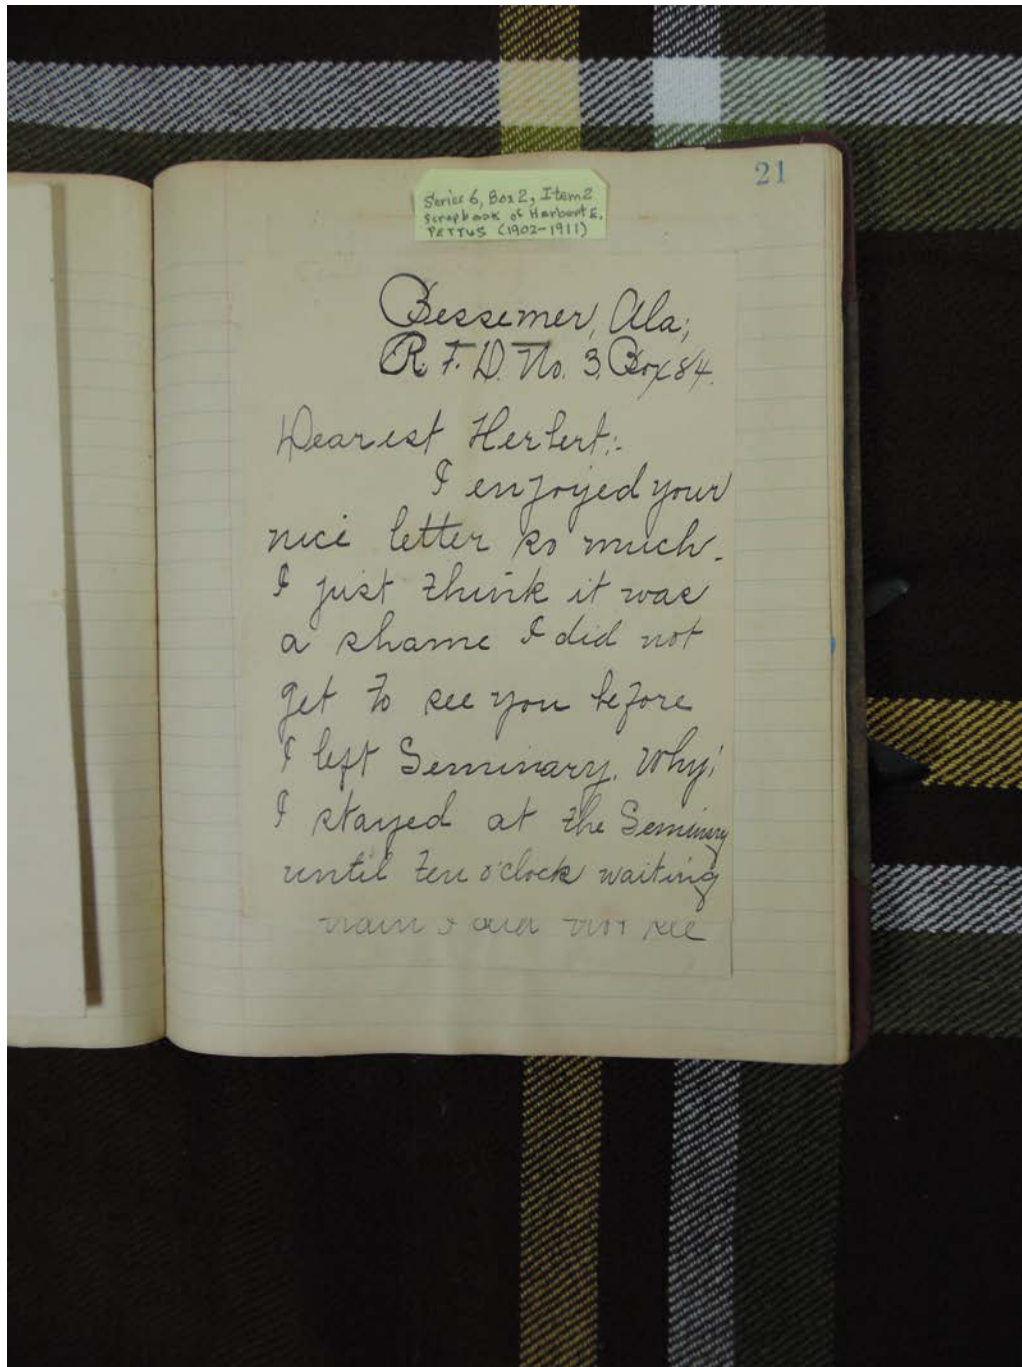 21
Series 6, Box 2, Item 2
Scrapbook of Herbert E.
PETTUS (1902-1911)
Bessemer, Ala;
R. F. D. No. 3, Box 84.
Dearest Herbert:-
I enjoyed your
nice letter so much.
I just think it was
a shame I did not
get to see you before
I left Seminary. Why!
I stayed at the Seminary
until ten o'clock waiting
train I did not see